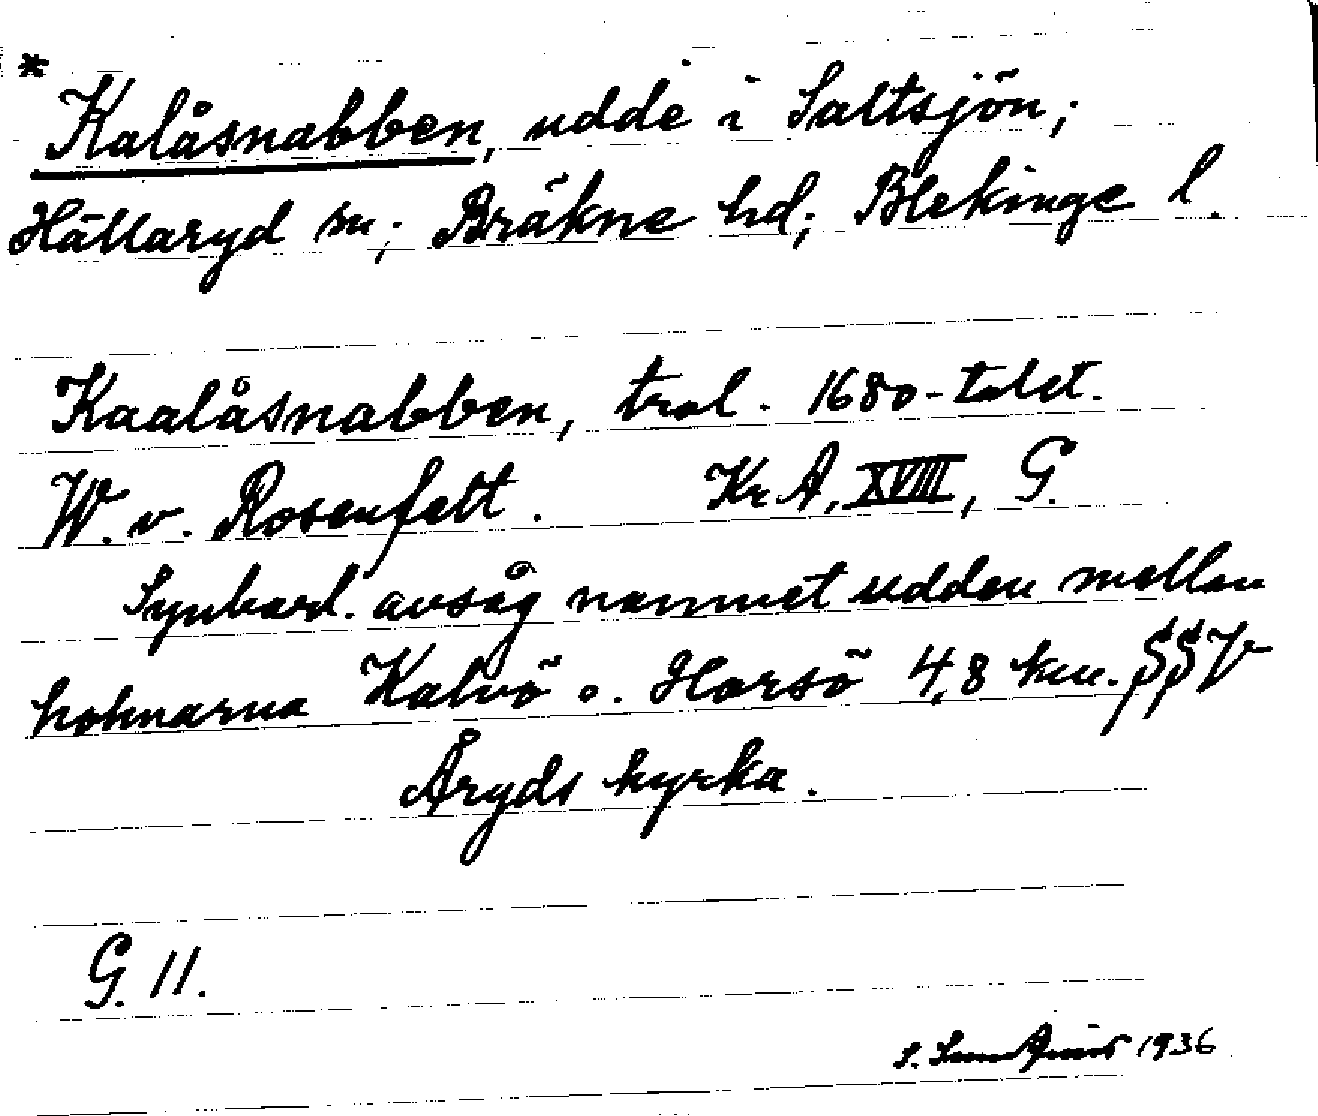 * Kalåsnabben, udde i Saltsjön;
Hällaryd sn; Bräkne hd; Blekinge l.
Kaalåsnabben, trol. 1680-talet.
W. v. Rosenfelt. Kr A, XVIII, G.
Synbarl. avsåg namnet udden mellan
holmarna Kalvö o. Horsö 4,8 km. SSV
Åryds kyrka.
G. 11.
S. 1936